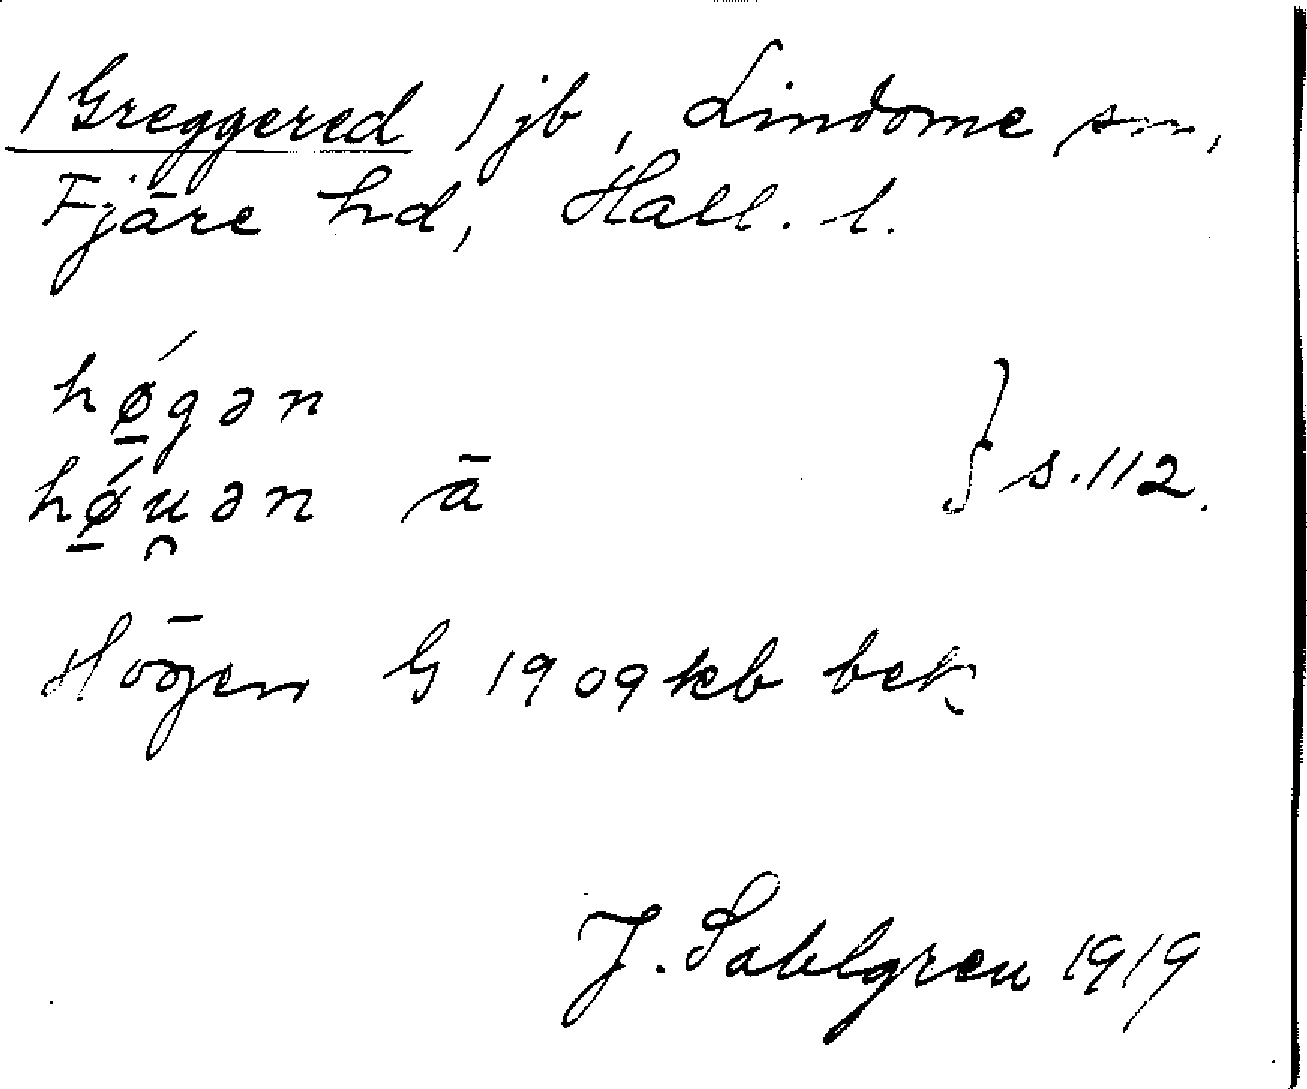 1 Greggered 1 jb, Lindome sn,
Fjäre hd, Hall. l.
hǿ̠gən
hǿ̠u̯ən ā } s. 112.
Högen G 1909 kb bek
J. Sahlgren 1919